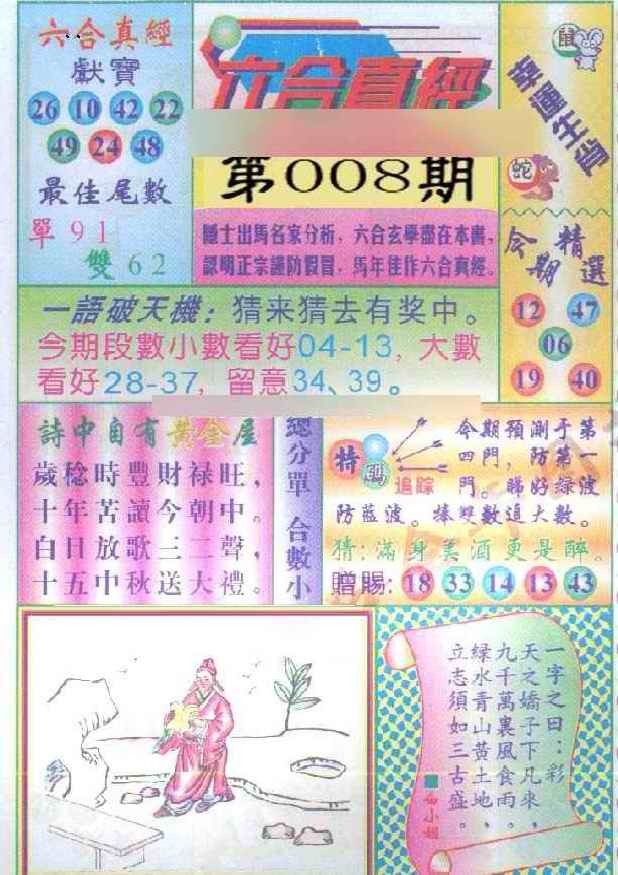 六合真經
獻寶
26 10 42 22
49 24 48
最佳尾數
單91
雙62
六合真經
第008期
隱士出馬名家分析，六合玄學盡在本書，
認明正宗謹防假冒，馬年佳作六合真經。
鼠
幸運生肖
蛇
今期精選
12 47
06
19 40
一語破天機：猜来猜去有奖中。
今期段數小數看好04-13，大數
看好28-37，留意34、39。
詩中自有黃金屋
歲稔時豐財禄旺，
十年苦讀今朝中。
白日放歌三二聲，
十五中秋送大禮。
總分單 合數小
特碼
追踪
今期預測于第
四門，防第一
門。睇好绿波
防蓝波。捧雙數追大數。
猜：滿身美酒更是醉。
贈賜：18 33 14 13 43
一字之曰：彩
天之嬌子下凡來，
九千萬裏風食雨，
绿水青山黃土地，
立志須如三古盛。
小姐